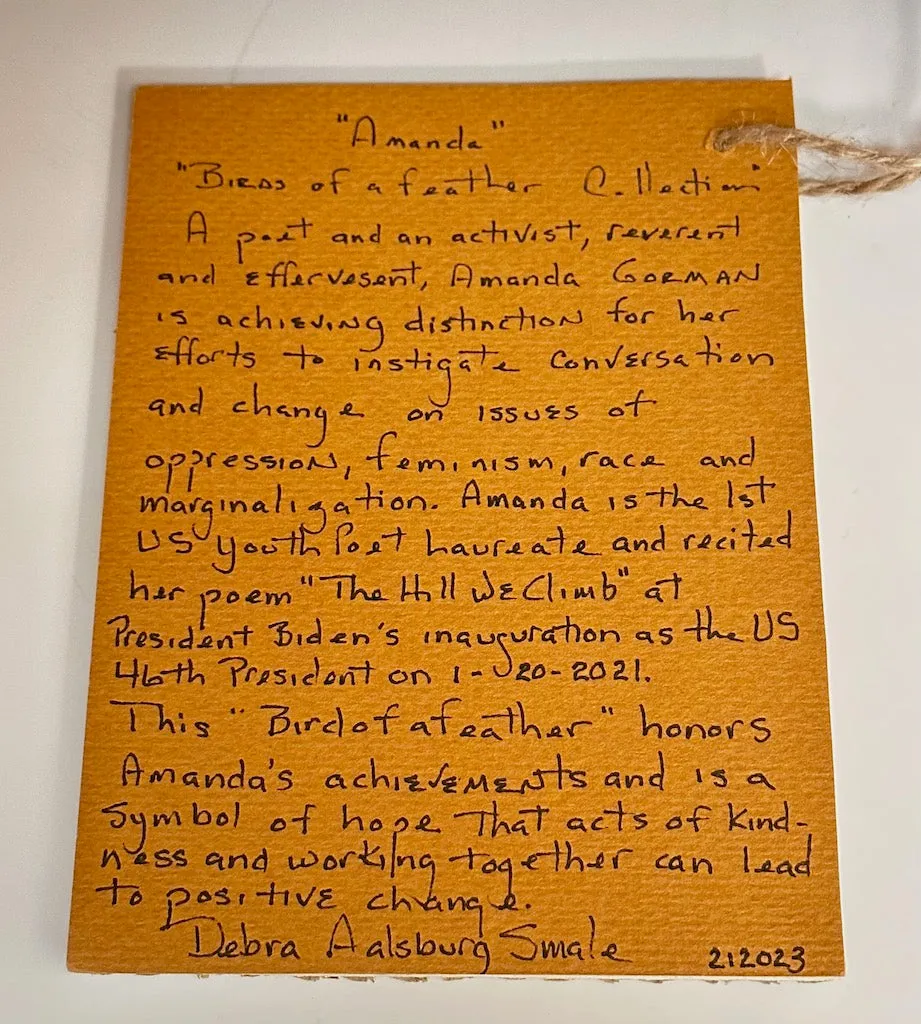 "Amanda"
"Birds of a feather Collection"
A poet and an activist, reverent
and effervesent, Amanda GORMAN
is achieving distinction for her
efforts to instigate conversation
and change on issues of
oppression, feminism, race and
marginalization. Amanda is the 1st
US Youth Poet Laureate and recited
her poem "The Hill We Climb" at
President Biden's inauguration as the US
46th President on 1-20-2021.
This "Bird of a feather" honors
Amanda's achievements and is a
Symbol of hope that acts of kind-
ness and working together can lead
to positive change.
Debra Aalsburg Smale 212023